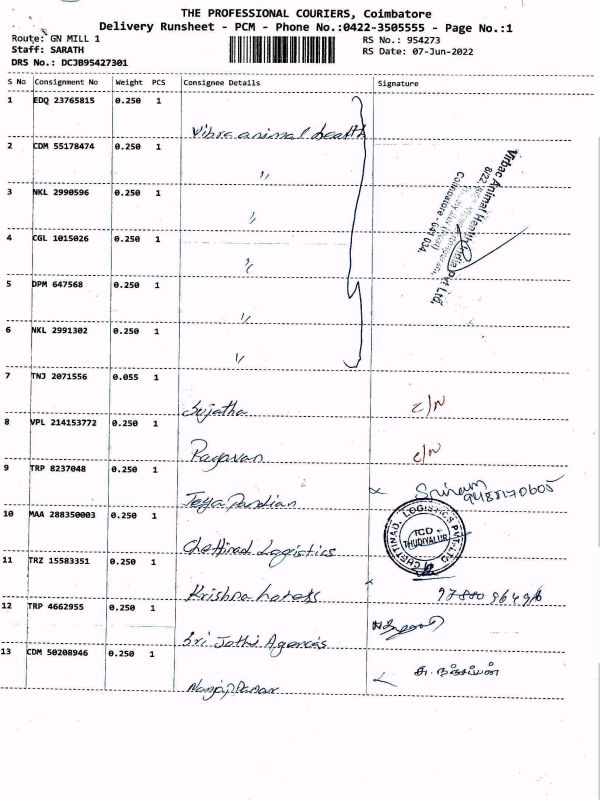 THE PROFESSIONAL COURIERS, Coimbatore
Delivery Runsheet - PCM - Phone No.:0422-3505555 - Page No.:1
Route: GN MILL 1
RS No.: 954273
Staff: SARATH
RS Date: 07-Jun-2022
DRS No.: DCJB95427301
S No Consignment No Weight PCS Consignee Details Signature
1 EDQ 23765815 0.250 1
Vibra animal health
2 CDM 55178474 0.250 1
"
3 NKL 2990596 0.250 1
"
4 CGL 1015026 0.250 1
"
5 DPM 647568 0.250 1
"
6 NKL 2991302 0.250 1
"
Virbac Animal Health India Pvt Ltd,
Coimbatore - 641 034.
7 TNJ 2071556 0.055 1
Sujatha c/n
8 VPL 214153772 0.250 1
Ragavan c/n
9 TRP 8237048 0.250 1
Jeya Pandian Sriram
10 MAA 288350003 0.250 1
Chettinad Logistics
CHETTINAD LOGISTICS PVT. LTD
TCD
THUDIYALUR
11 TRZ 15583351 0.250 1
Krishna hotels
12 TRP 4662955 0.250 1
Sri Jothi Agencies
13 CDM 50208946 0.250 1
Nanjappan சு. நஞ்சப்பன்